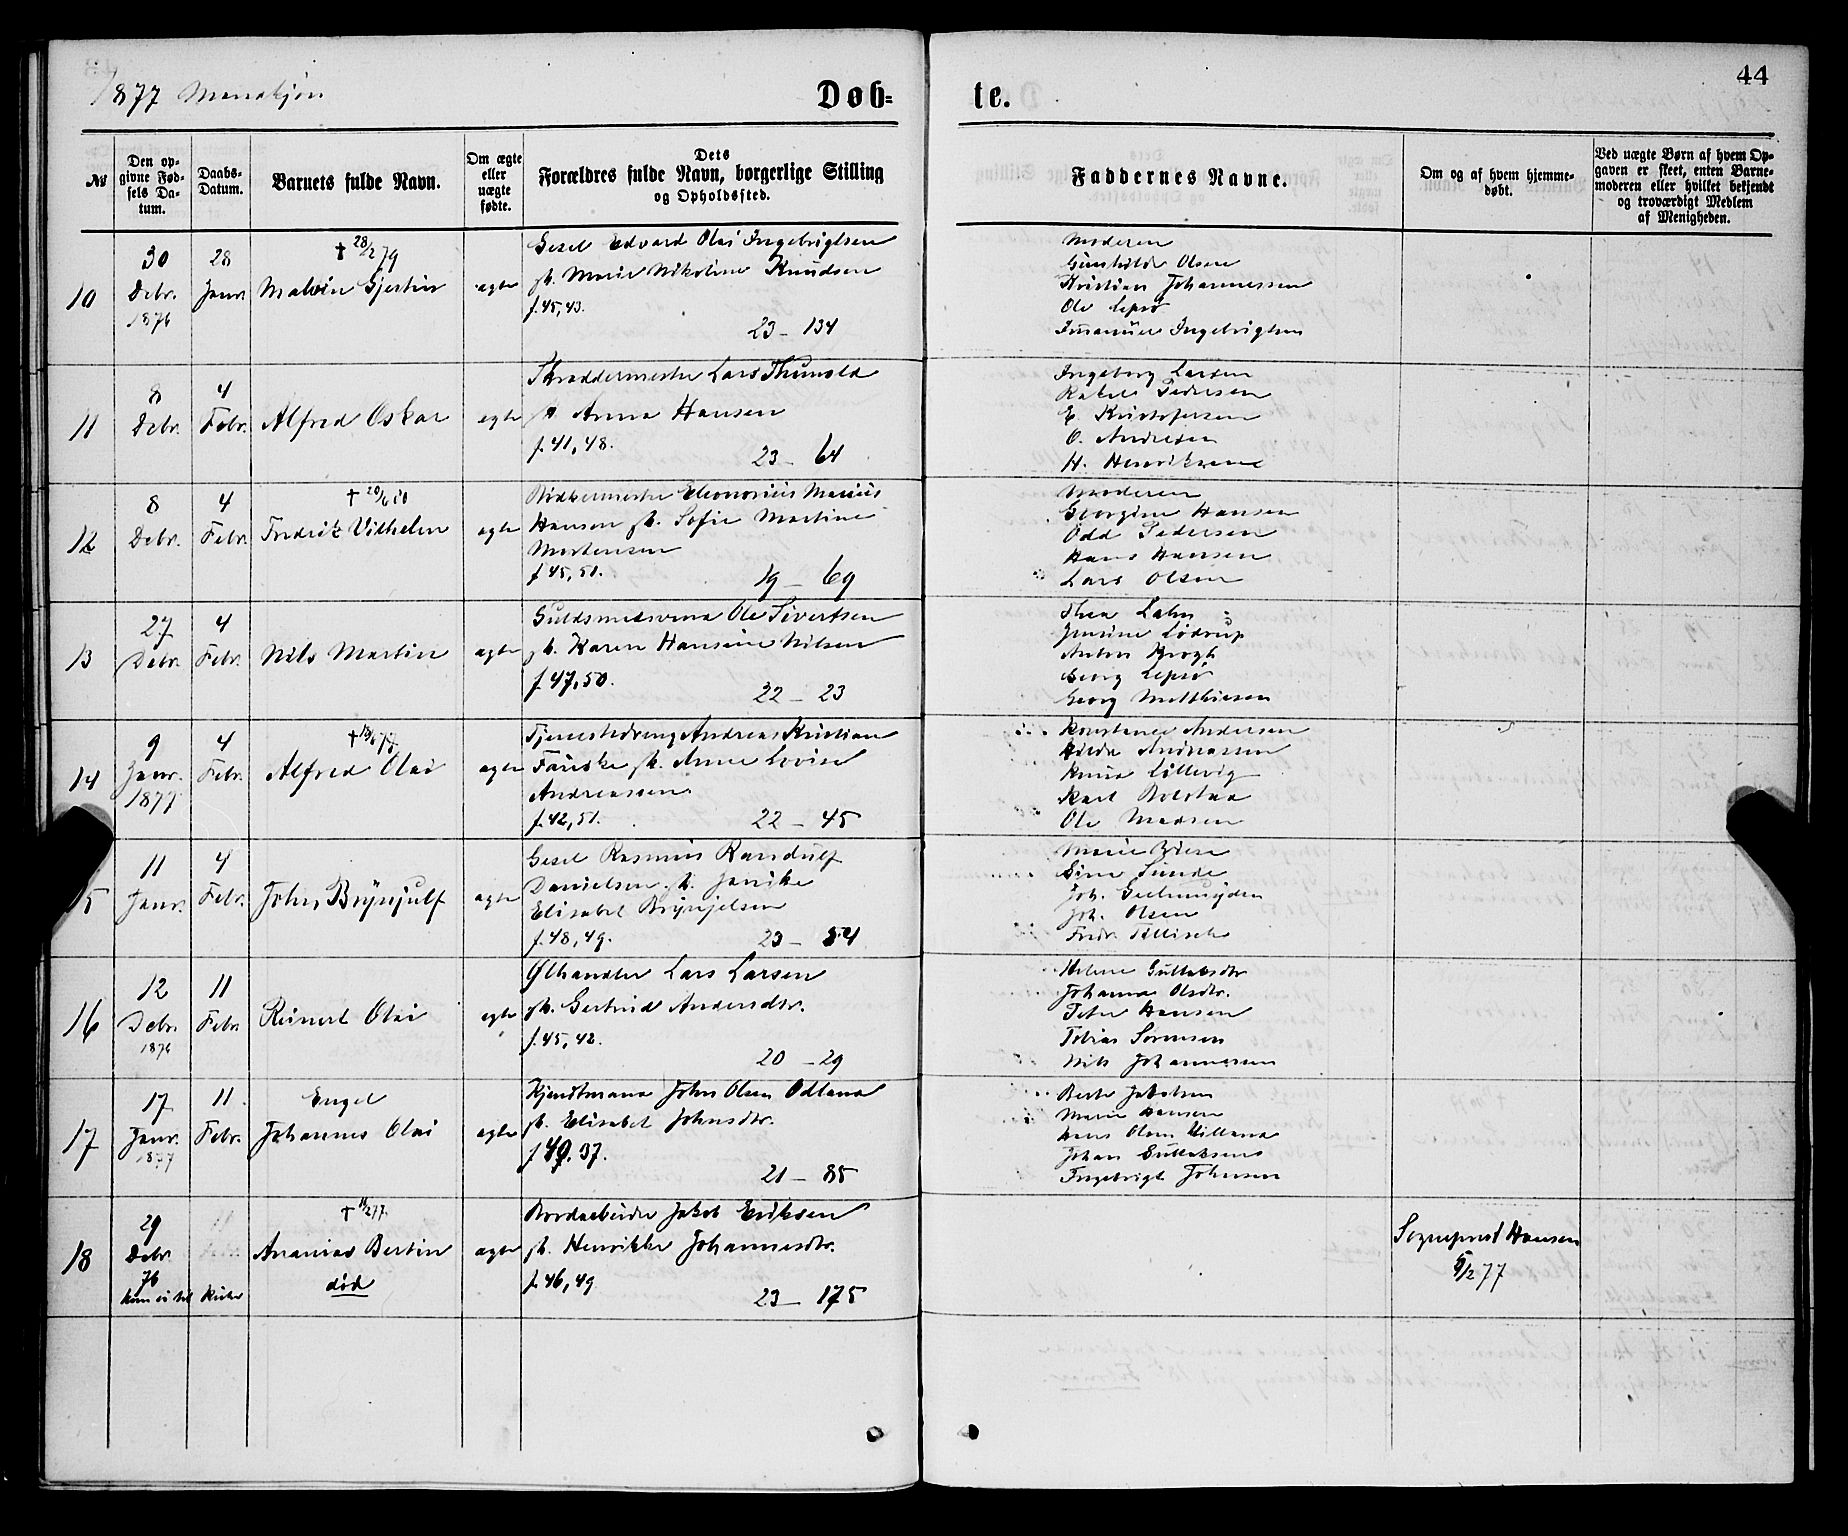 44
1877 Mandkjøn
Døb- te.
№
Den opgivne Fødsels Datum.
Daabs-Datum.
Barnets fulde Navn.
Om ægte eller uægte fødte.
Dets Forældres fulde Navn, borgerlige Stilling og Opholdssted.
Faddernes Navne.
Om og af hvem hjemmedøbt.
Ved uægte Børn af hvem Opgaven er skeet, enten Barnemoderen eller hvilket bekjendt og troværdigt Medlem af Menigheden.
10
30 Debr. 1876
28 Janr
† 28/2 79
Malvin Gjertin
ægte
Gesel Edvard Olai Ingebrigtsen
h. Marie Nikoline Knudsen
f. 45, 43.
23 - 134
Moderen
Gunhilde Olsen
Kristian Johannessen
Ole Lepsø
Imanuel Ingebrigtsen
11
8 Debr.
4 Febr.
Alfred Oskar
ægte
Skræddermester Lars Thunold
h. Anna Hansen
f. 41, 48.
23 - 64
Ingeborg Larsen
Rakel Pedersen
E. Kristofersen
O. Andresen
H. Henriksen
12
8 Debr.
4 Febr.
† 20/6 80
Fredrik Vilhelm
ægte
Bødkermester Eleonorius Marius
Hansen h. Sofie Martine
Mortensen
f. 45, 51.
19 - 69
Moderen
Georgine Hansen
Odd Pedersen
Hans Hansen
Lars Olsen
13
27 Debr.
4 Febr.
Nils Martin
ægte
Guldsmedsvend Ole Sivertsen
h. Karen Hansine Nilsen
f. 47, 50.
22 - 23
Thea Lahn
Jensine Lødrup
Anton Krogh
Georg Lepsø
Georg Matthiesen
14
9 Janr. 1877
4 Febr.
Alfred Olai
ægte
Tjenestedreng Andreas Kristian
h. Anne Lovise
Andreassen
f. 42, 51.
22 - 45
Konstance Andersen
Hilda Andreassen
Knud Lillevig
Karl Bolstad
Ole Madsen
15
11 Janr.
4 Febr.
John Brynjulf
ægte
Gesel Rasmus Randulf
Danielsen h. Janike
Elisabet Brynjelsen
f. 48, 49.
23 - 54
Marie
Sine Sunde
Joh. Geelmuyden
Joh. Olsen
Fredr. Tillisch
16
12 Debr. 1876
11 Febr
Reinert Olai
ægte
Ølhandler Lars Larsen
h. Gertrud Andersdtr.
f. 45, 42.
20 - 29
Helene Gulleksdtr
Johanna Olsdtr.
Peter Hansen
Tobias Sørensen
Nils Johannessen
17
17 Janr. 1877
11. Febr.
Engel
Johannes Olai
ægte
Kjendtmand John Olsen Odland
h. Elisabet Johnsdtr.
f. 49. 37.
21 - 85
Berte Jakobsen
Marie Hansen
Hans Olsen Hilland
Johan Gulleksens
Ingebrigt Johnsen
18
29 Debr. 76
kom ei til Kirke
† 11/2 77.
Ananias Bertin
død
ægte
Bordarbeider Jakob Eriksen
h. Henrikke Johannesdtr.
f. 46, 49.
23 - 175
Sogneprest Hansen
5/2 77